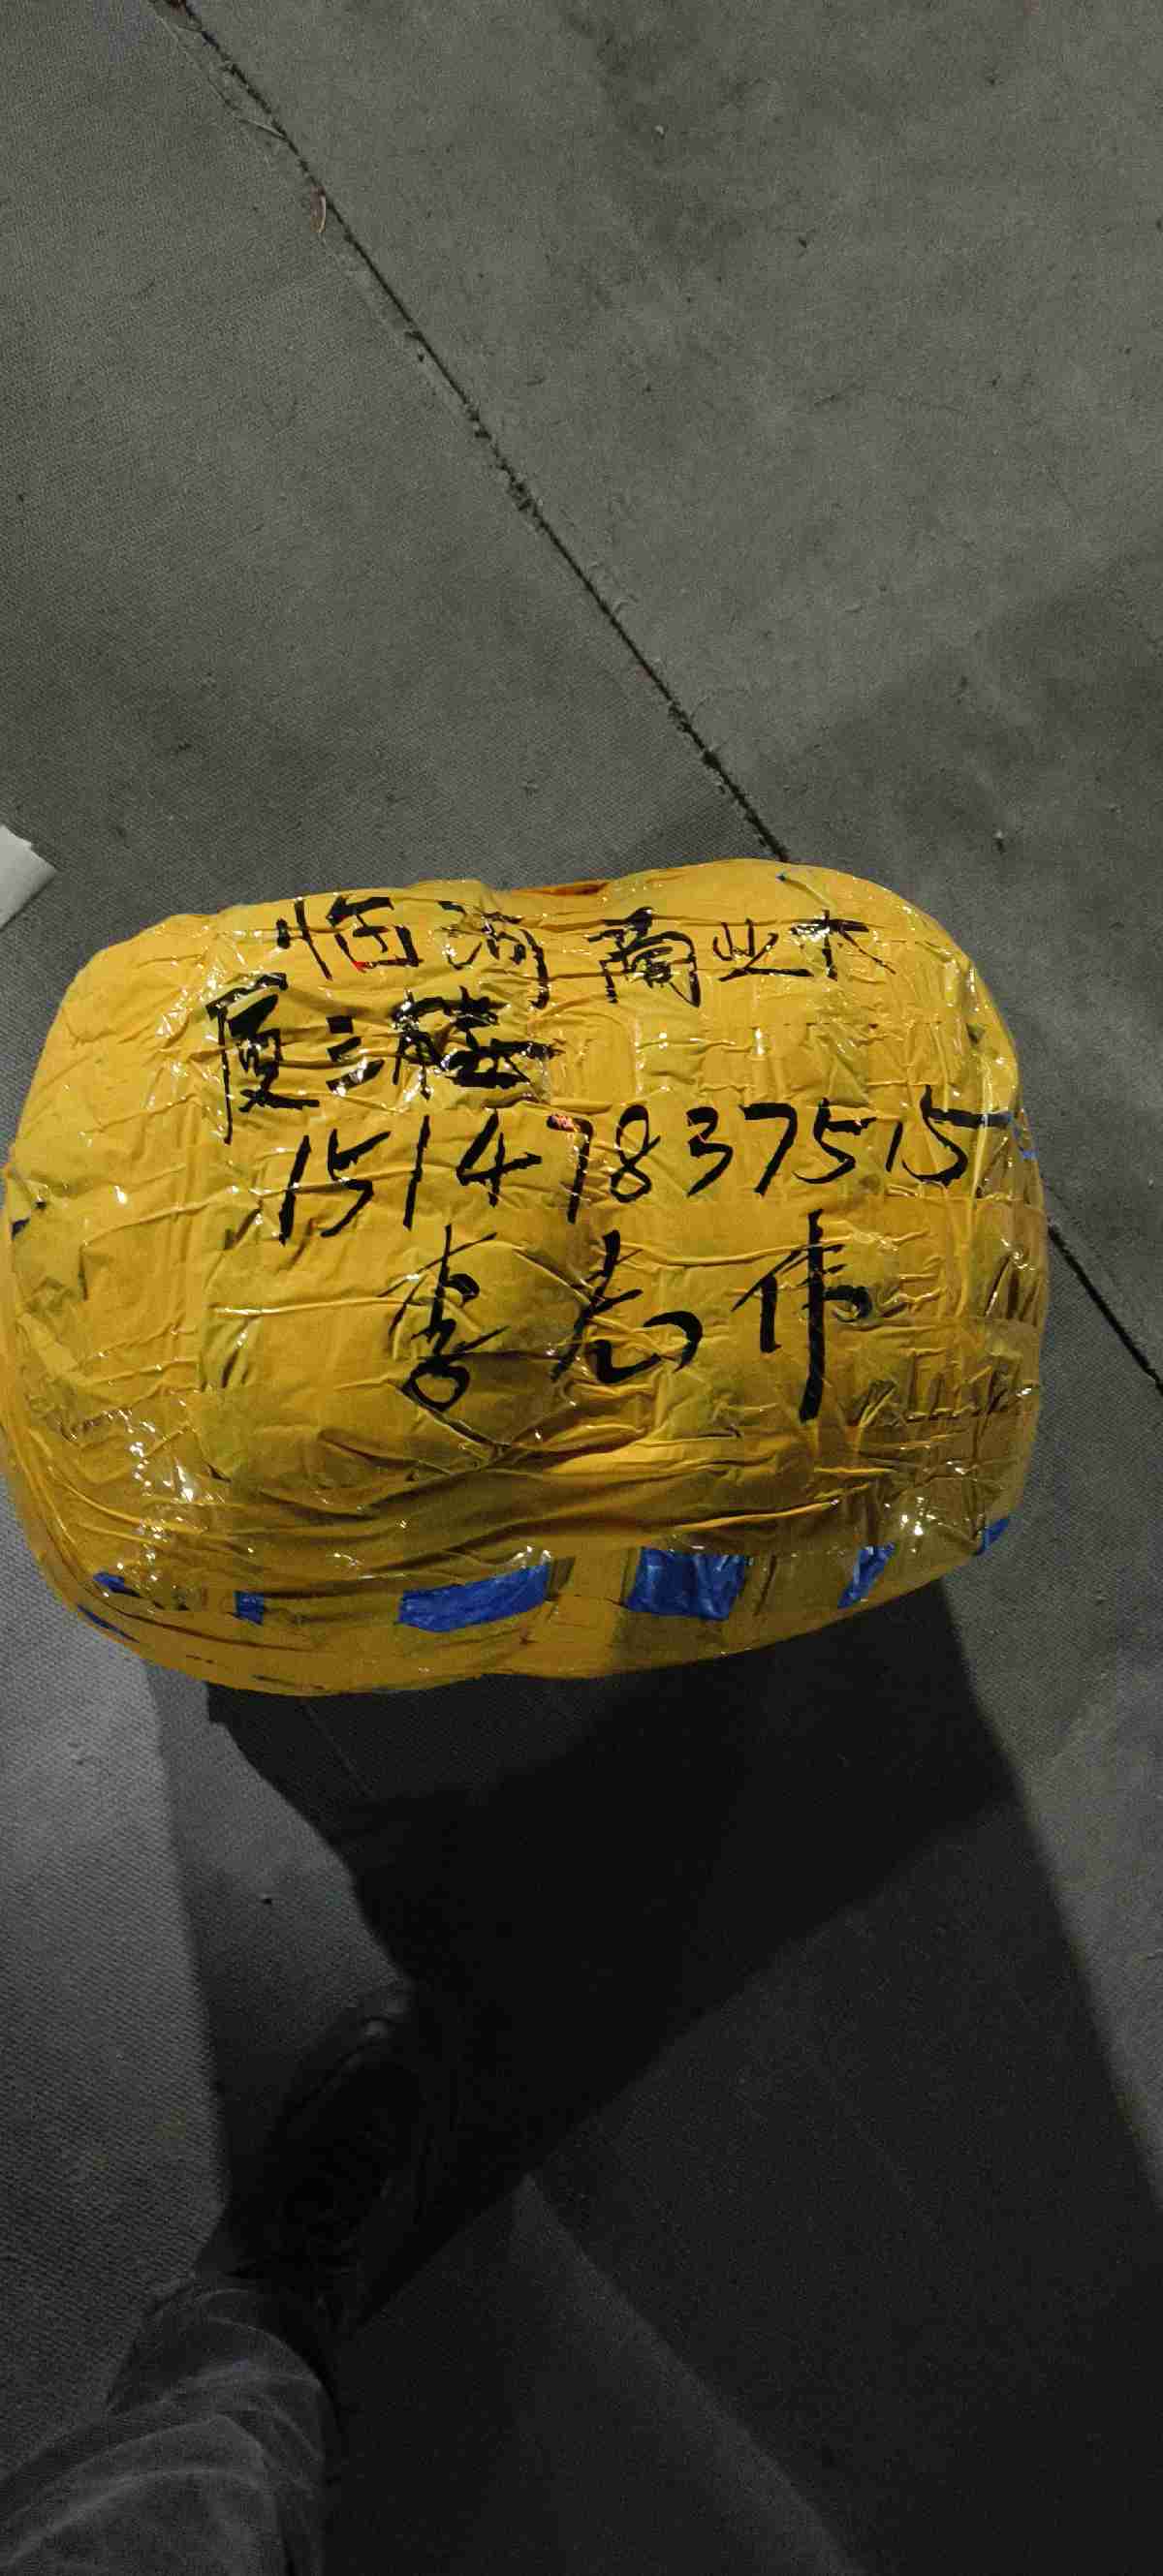 临河商业大
厦三楼
15147837515
李志伟